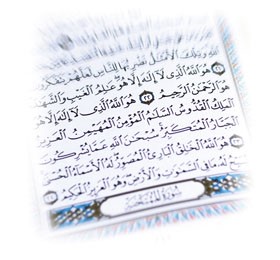 وَتِلْكَ ٱلْأَمْثَٰلُ نَضْرِبُهَا لِلنَّاسِ لَعَلَّهُمْ يَتَفَكَّرُونَ
٢١ هُوَ ٱللَّهُ ٱلَّذِى لَآ إِلَٰهَ إِلَّا هُوَ عَٰلِمُ ٱلْغَيْبِ وَٱلشَّهَٰدَةِ
هُوَ ٱلرَّحْمَٰنُ ٱلرَّحِيمُ ٢٢ هُوَ ٱللَّهُ ٱلَّذِى لَآ إِلَٰهَ إِلَّا هُوَ
ٱلْمَلِكُ ٱلْقُدُّوسُ ٱلسَّلَٰمُ ٱلْمُؤْمِنُ ٱلْمُهَيْمِنُ ٱلْعَزِيزُ
ٱلْجَبَّارُ ٱلْمُتَكَبِّرُ سُبْحَٰنَ ٱللَّهِ عَمَّا يُشْرِكُونَ
٢٣ هُوَ ٱللَّهُ ٱلْخَٰلِقُ ٱلْبَارِئُ ٱلْمُصَوِّرُ لَهُ ٱلْأَسْمَآءُ ٱلْحُسْنَىٰ
يُسَبِّحُ لَهُۥ مَا فِى ٱلسَّمَٰوَٰتِ وَٱلْأَرْضِ وَهُوَ ٱلْعَزِيزُ ٱلْحَكِيمُ
سُورَةُ ٱلْمُمْتَحَنَةِ